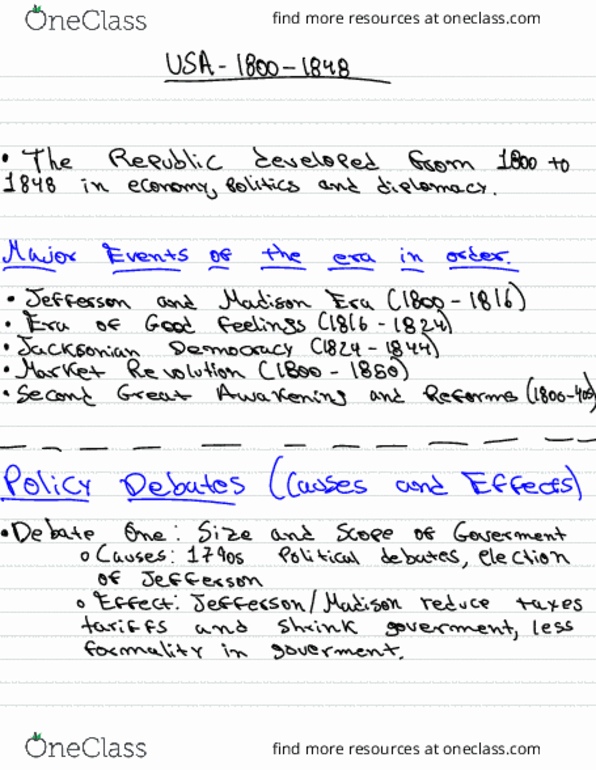 OneClass find more resources at oneclass.com
USA - 1800 - 1848
• The Republic developed from 1800 to
1848 in economy, politics and diplomacy.
Major Events of the era in order.
• Jefferson and Madison Era (1800 - 1816)
• Era of Good Feelings (1816 - 1824)
• Jacksonian Democracy (1824 - 1844)
• Market Revolution (1800 - 1860)
• Second Great Awakening and Reforms (1800-40s)
Policy Debates (Causes and Effects)
• Debate One: Size and Scope of Goverment
o Causes: 1790s Political debates, election
of Jefferson
o Effect: Jefferson/Madison reduce taxes
tariffs and shrink goverment, less
formality in goverment.
OneClass find more resources at oneclass.com